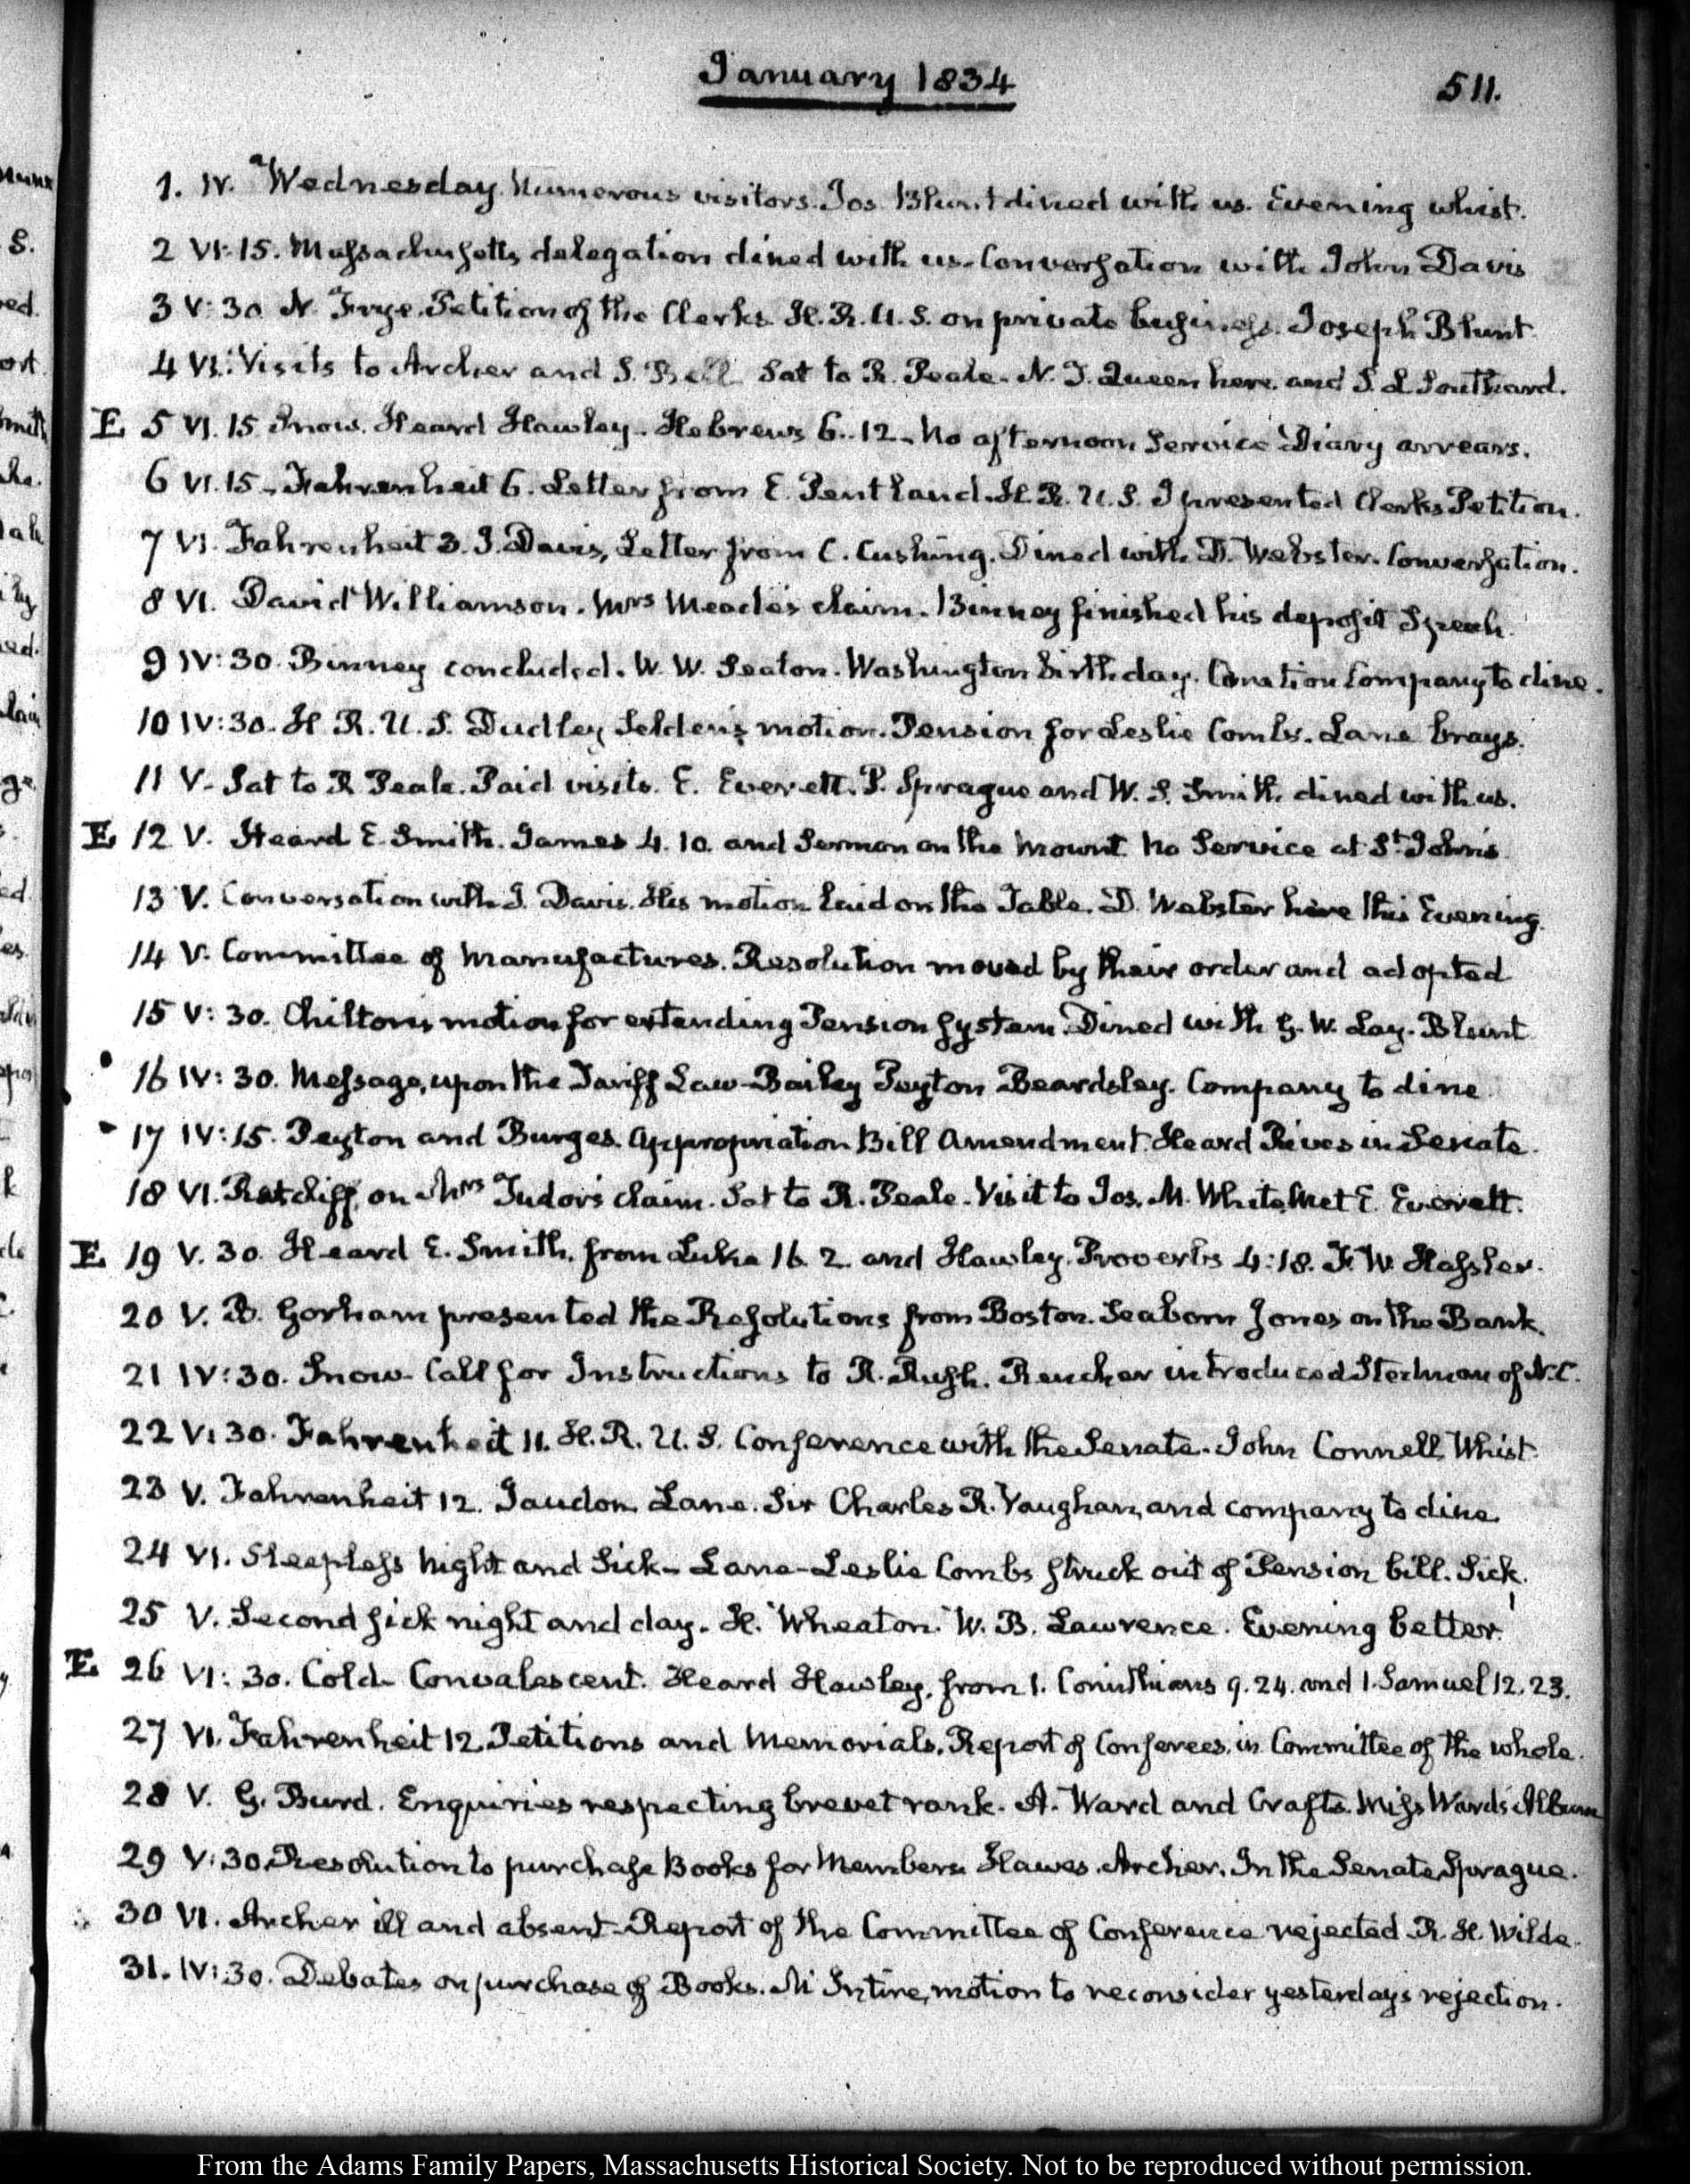 January 1834
511.
1. IV. Wednesday. Numerous visitors. Jos. Blunt dined with us. Evening whist.
2 VI:15. Massachusetts delegation dined with us. Conversation with John Davis
3 V:30 N. Frye. Petition of the Clerks. H.R.U.S. on private business. Joseph Blunt.
4 VI. Visits to Archer and J. Bell Sat to R. Peale. N. J. Queen here and S. L Southard.
E 5 VI. 15 Snow. Heard Hawley. Hebrews 6..12. No afternoon Service Diary arrears.
6 VI. 15. Fahrenheit 6. Letter from E. Pentland. H.R.U.S. I presented Clerks Petition.
7 VI. Fahrenheit 3. J. Davis, Letter from C. Cushing. Dined with D. Webster. Conversation.
8 VI. David Williamson. Mrs Meade's claim. Binney finished his deposit Speech.
9 IV:30. Binney concluded. W. W. Seaton. Washington birthday. Company to dine.
10 IV:30. H. R. U. S. Dudley Selden's motion. Pension for Leslie Combs. Lane brays.
11 V. Sat to R Peale. Paid visits. E. Everett. P. Sprague and W. S. Smith dined with us.
E 12 V. Heard E. Smith. James 4. 10. and Sermon on the Mount. No Service at St. John's
13 V. Conversation with J. Davis. His motion laid on the Table. D. Webster here this Evening.
14 V. Committee of Manufactures. Resolution moved by their order and adopted
15 V:30. Chilton's motion for extending Pension System. Dined with G. W. Lay. Blunt
16 IV:30. Message, upon the Tariff Law. Bailey Peyton Beardsley. Company to dine
17 IV:15. Peyton and Burges. Appropriation Bill Amendment. Heard Rives in Senate.
18 VI. Ratcliff, on Mrs Tudor's claim. Sat to R. Peale. Visit to Jos. M. White. Met E. Everett.
E 19 V. 30. Heard E. Smith, from Luke 16. 2. and Hawley. Proverbs 4:18. F. W. Hassler.
20 V. B. Gorham presented the Resolutions from Boston. Seaborn Jones on the Bank.
21 IV:30. Snow. Call for Instructions to R. Rush. Rencher introduced Stedman of N.C.
22 V:30. Fahrenheit 11. H.R.U.S. Conference with the Senate. John Connell, Whist
23 V. Fahrenheit 12. Jaudon Lane. Sir Charles R. Vaughan, and company to dine.
24 VI. Sleepless night and Sick. Lane. Leslie Combs struck out of Pension bill. Sick.
25 V. Second sick night and day. H. Wheaton. W. B. Lawrence. Evening better.
E 26 VI:30. Cold. Convalescent. Heard Hawley, from 1. Corinthians 9. 24. and 1. Samuel 12. 23.
27 VI. Fahrenheit 12. Petitions and Memorials. Report of Conferees, in Committee of the whole.
28 V. G. Burd. Enquiries respecting brevet rank. A. Ward and Crafts. Miss Ward's Album
29 V:30. Resolution to purchase Books for Members. Hawes. Archer. In the Senate Sprague.
30 VI. Archer ill and absent. Report of the Committee of Conference rejected. R. H. Wilde.
31. IV:30. Debates on purchase of Books. McIntire, motion to reconsider yesterday's rejection.
From the Adams Family Papers, Massachusetts Historical Society. Not to be reproduced without permission.